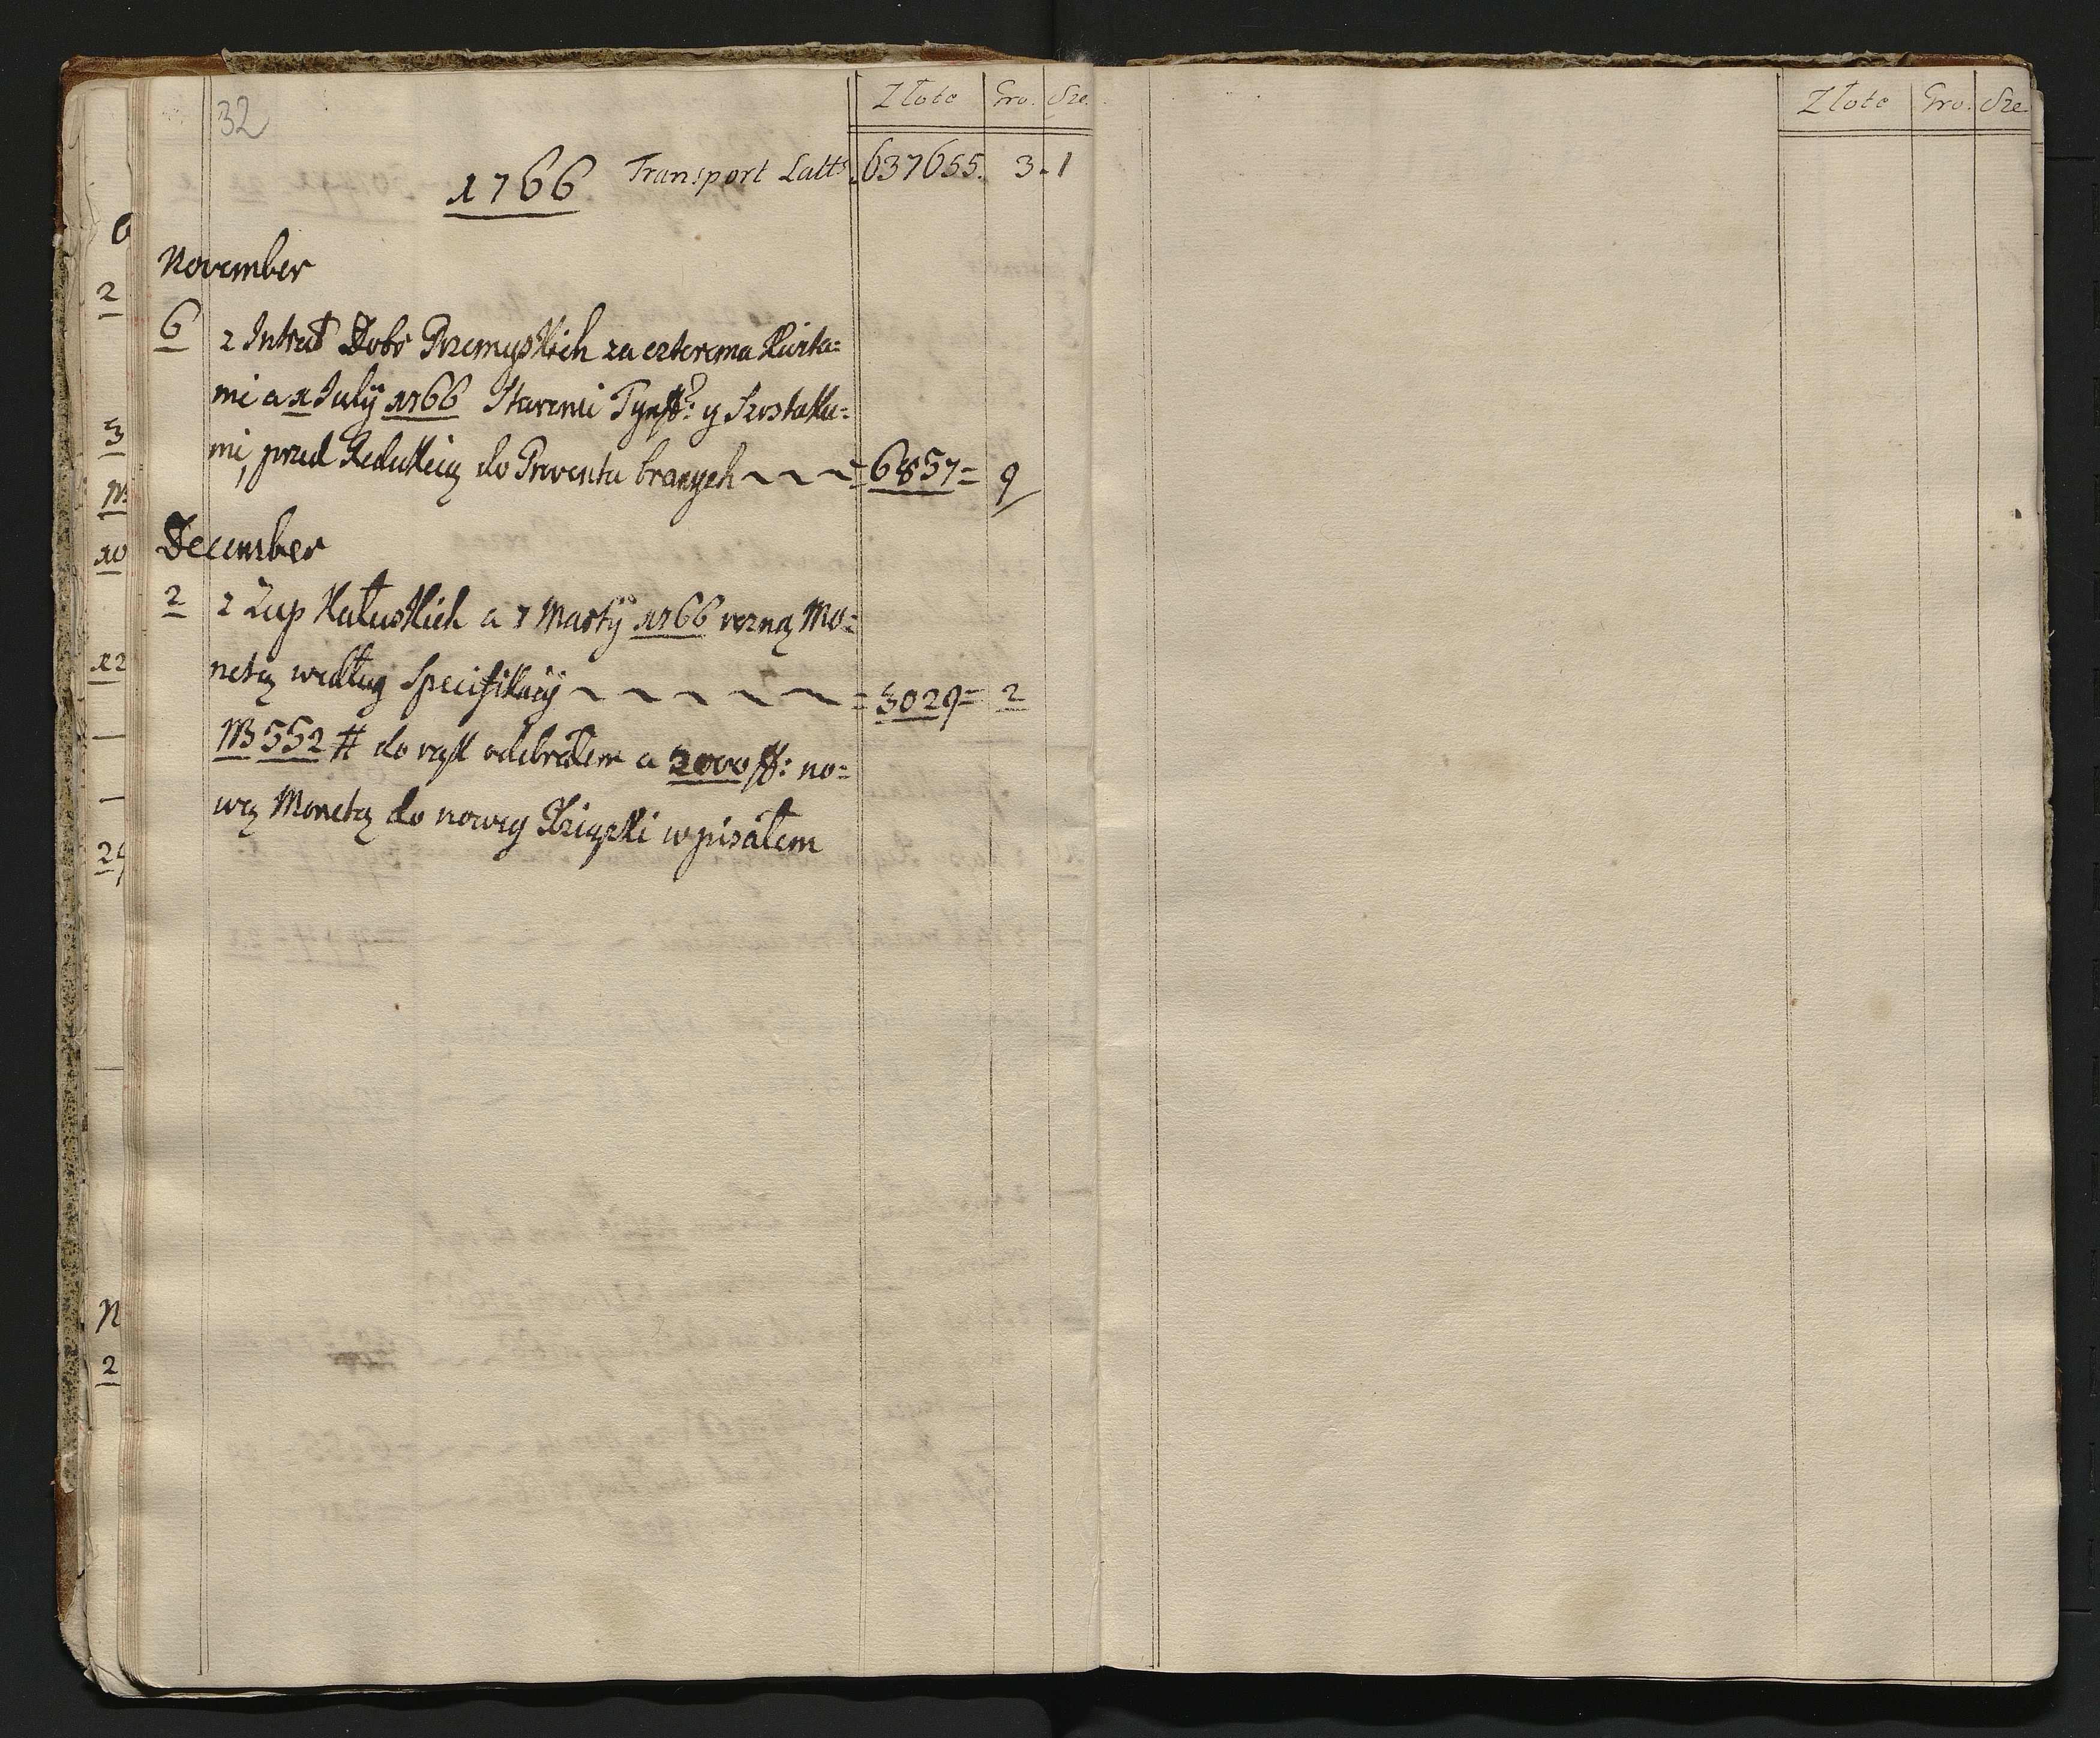 32
Złote Gro. Sze.
1766 Transport Latts 637655. 3. 1
November
6 z Intrat Dobr Przemyskich za czterema Kwita=
mi a 1 Julÿ 1766 Staremi Tynff: y Szostaka=
mi, przed Redukcią do Proventu branych = 6857 = 9
December
2 z Zup Kałuskich a 7 Martÿ 1766 rozną Mo=
netą według Specifikacÿ = 3029 = 2
NB 552 # do rąk odebrałem a 2000 ff: no=
wą Monetą do nowey Ksiąszki wpisałem
Złote Gro. Sze
2
3
10
12
24
2